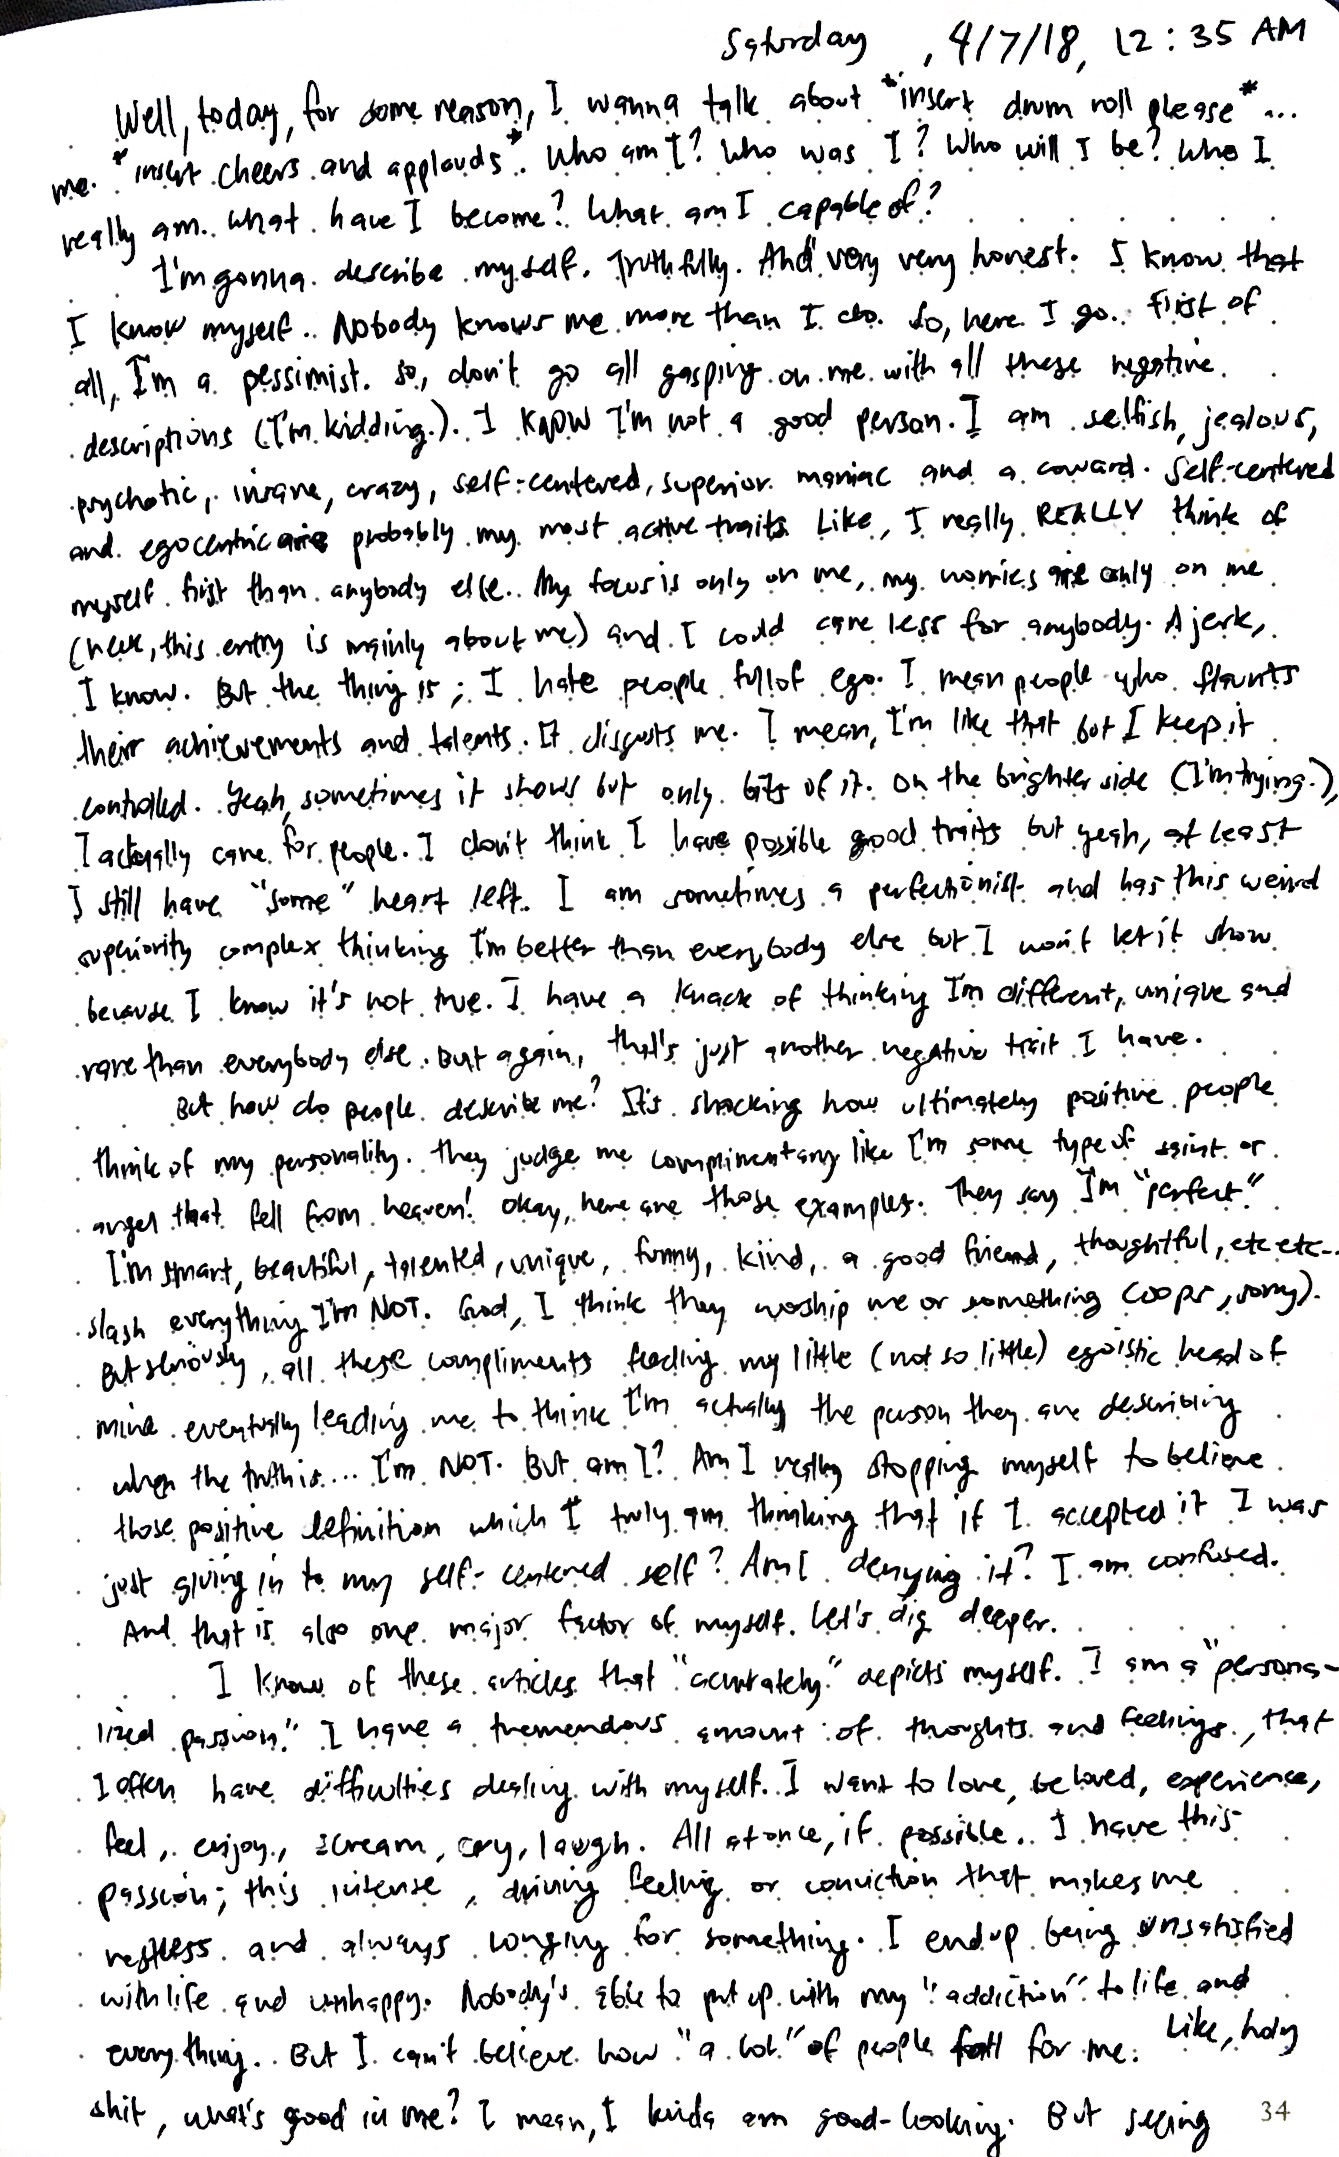 Saturday , 4/7/18, 12:35 AM
Well, today, for some reason, I wanna talk about *insert drum roll please*...
me. *insert cheers and applauds*. Who am I? Who was I? Who will I be? Who I
really am. What have I become? What am I capable of?
I'm gonna describe myself. Truthfully. And very very honest. I know that
I know myself.. Nobody knows me more than I do. So, here I go.. First of
all, I'm a pessimist. So, don't go all gasping on me with all these negative
descriptions (I'm kidding.). I KNOW I'm not a good person. I am selfish, jealous,
psychotic, insane, crazy, self-centered, superior maniac and a coward. Self-centered
and egocentric are probably my most active traits. Like, I really REALLY think of
myself first than anybody else.. My focus is only on me, my worries are only on me
(heck, this entry is mainly about me) and I could care less for anybody. A jerk,
I know. But the thing is; I hate people full of ego. I mean people who flaunts
their achievements and talents. It disgusts me. I mean, I'm like that but I keep it
controlled. Yeah, sometimes it shows but only bits of it. On the brighter side (I'm trying.),
I actually care for people. I don't think I have possible good traits but yeah, at least
I still have "some" heart left. I am sometimes a perfectionist and has this weird
superiority complex thinking I'm better than everybody else but I won't let it show
because I know it's not true. I have a knack of thinking I'm different, unique and
rare than everybody else. But again, that's just another negative trait I have.
But how do people describe me? It's shocking how ultimately positive people
think of my personality. They judge me complimentary like I'm some type of saint or
angel that fell from heaven! Okay, here are those examples. They say I'm "perfect"
I'm smart, beautiful, talented, unique, funny, kind, a good friend, thoughtful, etc etc..
slash everything I'm NOT. God, I think they worship me or something (oops, sorry).
But seriously, all these compliments feeding my little (not so little) egoistic head of
mine eventually leading me to think I'm actually the person they are describing
when the truth is.... I'm NOT. But am I? Am I really stopping myself to believe
those positive definition which I truly am thinking that if I accepted it I was
just giving in to my self-centered self? Am I denying it? I am confused.
And that is also one major factor of myself. Let's dig deeper.
I know of these articles that "accurately" depicts myself. I am a "persona-
lized passion." I have a tremendous amount of thoughts and feelings, that
I often have difficulties dealing with myself. I want to love, be loved, experience,
feel, enjoy, scream, cry, laugh. All at once, if possible.. I have this
passion; this intense, driving feeling or conviction that makes me
restless and always longing for something. I end up being unsatisfied
with life and unhappy. Nobody's able to put up with my "addiction" to life and
everything.. But I can't believe how "a lot" of people fall for me. Like, holy
shit, what's good in me? I mean, I kinda am good-looking. But seeing
34